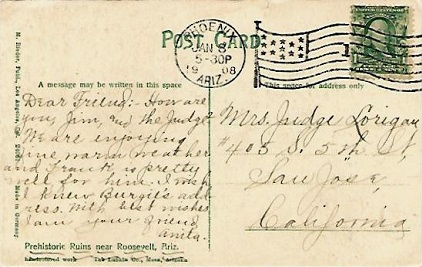 POST CARD
PHOENIX
JAN 8
5-30P
1908
ARIZ.
A message may be written in this space
This space for address only
M. Rieder, Publ., Los Angeles, Cal.
Made in Germany
Dear Friend:- How are
you, Jim, and the Judge
We are enjoying
fine warm weather
and Frank is pretty
well for him. I wish
I knew Burgie's ad-
dress. With best wishes
I am your friend
Anita.
Mrs. Judge Lorigan
#405 S. 5th St,
San Jose,
California
Prehistoric Ruins near Roosevelt, Ariz.